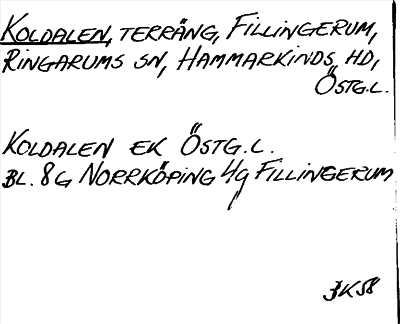 KOLDALEN, TERRÄNG, FILLINGERUM,
RINGARUMS SN, HAMMARKINDS HD,
ÖSTG.L.
KOLDALEN EK ÖSTG.L.
BL. 8G NORRKÖPING 4g FILLINGERUM
3K58